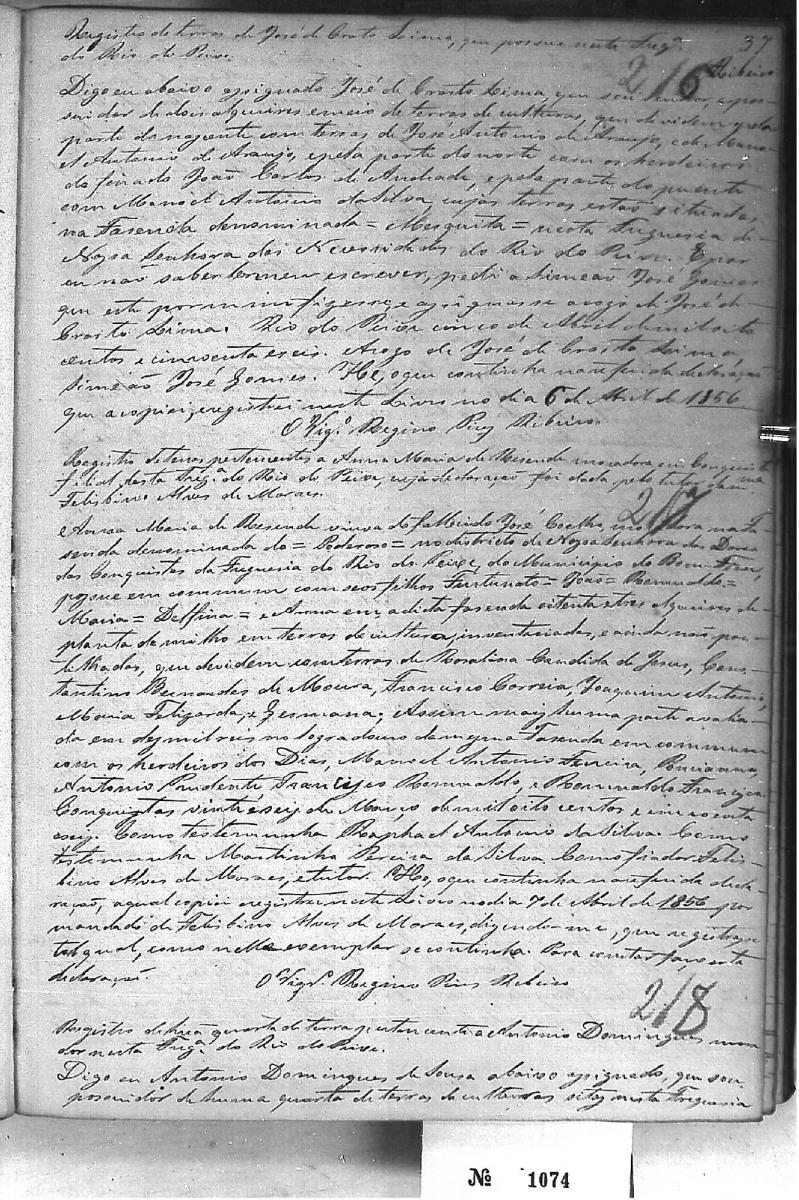 Registro de terras de José de Crasto Lima, que possue nesta Freg.ª 37
do Rio do Peixe. Ribeiro
216
Digo eu abaixo assignado José de Crasto Lima, que sou senhor, e pos-
suidor de dois alqueires e meio de terras de culturas, que devidem pela
parte do nascente com terras de José Antonio de Araujo, e de Mano-
el Antonio de Araujo, e pela parte do norte com os herdeiros
do finado João Carlos de Andrade, e pela parte do poente
com Manoel Antonio da Silva, cujas terras estão situadas,
na Fasenda denominada = Mesquita = nesta Freguesia de
Nossa Senhora das Necessidades do Rio do Peixe. E por
eu não saber ler nem escrever, pedi a Simeão José Gomes
que este por mim fizesse, e assignasse a rogo de José de
Crasto Lima. Rio do Peixe cinco de Abril de mil oito
centos e cincoenta e seis. Arogo de José de Crasto Lima,
Simeão José Gomes. He, o que continha na referida declaração
que a copiei, e registrei neste Livro no dia 6 de Abril de 1856
O Vigr.º Regino Pires Ribeiro.
Registro de terras pertencentes a Anna Maria de Resende moradora em Conquista
filial desta Freg.ª do Rio do Peixe, cuja declaração foi dada pelo tutor da m.ma
Felisbino Alves de Moraes.
217
Anna Maria de Resende viuva do fallecido José Coelho, moradora na Fa-
senda denominada do = Poderoso = no districto de Nossa Senhora das Dores
das Conquistas da Freguesia do Rio do Peixe, do Municipio do Bom-Fim,
possue em commum com seos filhos Furtunato = João = Romualdo =
Maria = Delfina = e Anna em a dicta fasenda oitenta e tres alqueires de
planta de milho em terras de cultura, inventariadas, e ainda não par-
tilhadas, que devidem com terras de Rosaliana Candida de Jesus, Cons-
tantino Bernardes de Moura, Francisco Correia, Joaquim Antonio,
Maria Felizarda, e Germana; Assim mais huma parte avalia-
da em des mil reis no logradouro da mesma Fasenda em commum
com os herdeiros dos Dias, Manoel Antonio Ferreira, Ponciano,
Antonio Prudente, Francisco Romualdo, e Romualdo Francisco.
Conquistas vinte e seis de Março de mil oito centos e cincoenta
e seis. Como testemunha Raphael Antonio da Silva. Como
testemunha Martinho Pereira da Silva. Como fiador Felis-
bino Alves de Moraes, e tutor. He, o que continha na referida decla-
ração, a qual copiei e registrei neste Livro no dia 7 de Abril de 1856 por
mandado de Felisbino Alves de Moraes, disendo-me, que registrasse
tal qual, como nelle exemplar se continha. Para constar faço esta
declaração.
O Vigr.º Regino Pires Ribeiro
218
Registro de huã quarta de terra pertencente a Antonio Domingues mora
dor nesta Freg.ª do Rio do Peixe.
Digo eu Antonio Domingues de Sousa abaixo assignado, que sou
possuidor de huma quarta de terras de culturas sitas nesta Freguesia
Nº 1074